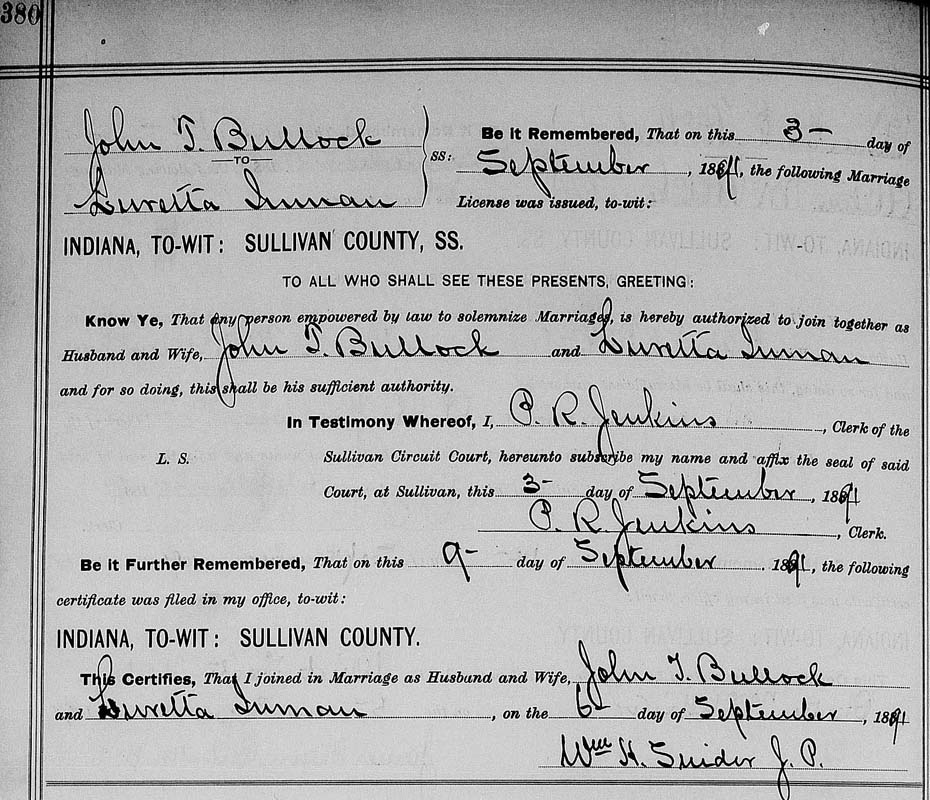 380
John T. Bullock
TO
Luretta Inman
SS:
Be it Remembered, That on this 3- day of
September, 1891, the following Marriage
License was issued, to-wit:
INDIANA, TO-WIT: SULLIVAN COUNTY, SS.
TO ALL WHO SHALL SEE THESE PRESENTS, GREETING:
Know Ye, That any person empowered by law to solemnize Marriages, is hereby authorized to join together as
Husband and Wife, John T. Bullock and Luretta Inman
and for so doing, this shall be his sufficient authority.
In Testimony Whereof, I, P. R. Jenkins, Clerk of the
L. S. Sullivan Circuit Court, hereunto subscribe my name and affix the seal of said
Court, at Sullivan, this 3- day of September, 1891
P. R. Jenkins, Clerk.
Be it Further Remembered, That on this 9- day of September, 1891, the following
certificate was filed in my office, to-wit:
INDIANA, TO-WIT: SULLIVAN COUNTY.
This Certifies, That I joined in Marriage as Husband and Wife, John T. Bullock
and Luretta Inman, on the 6- day of September, 1891
Wm H. Snider J. P.